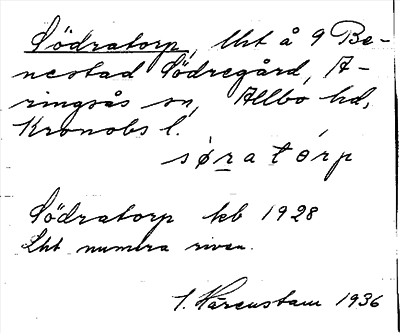 Södratorp, lht å 9 Be-
nestad Södregård, A-
ringsås sn, Allbo hd,
Kronobs l.
søratórp
Södratorp kb 1928
Lht numera riven.
I. Härenstam 1936